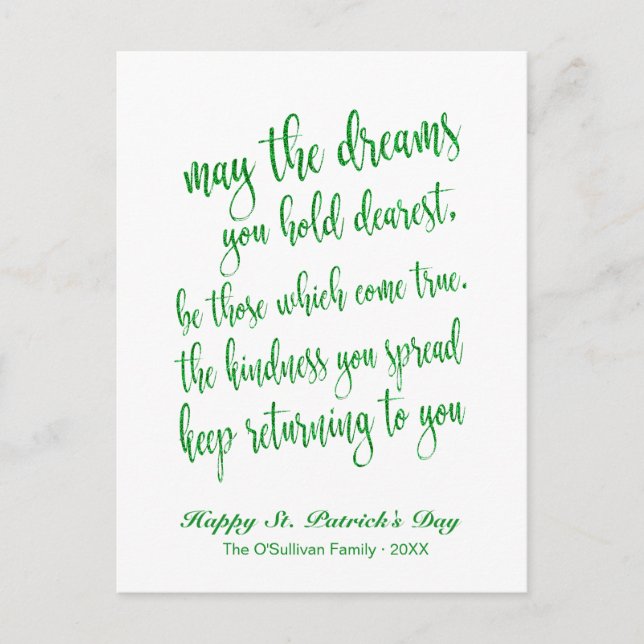 may the dreams
you hold dearest,
be those which come true.
the kindness you spread
keep returning to you
Happy St. Patrick's Day
The O'Sullivan Family · 20XX